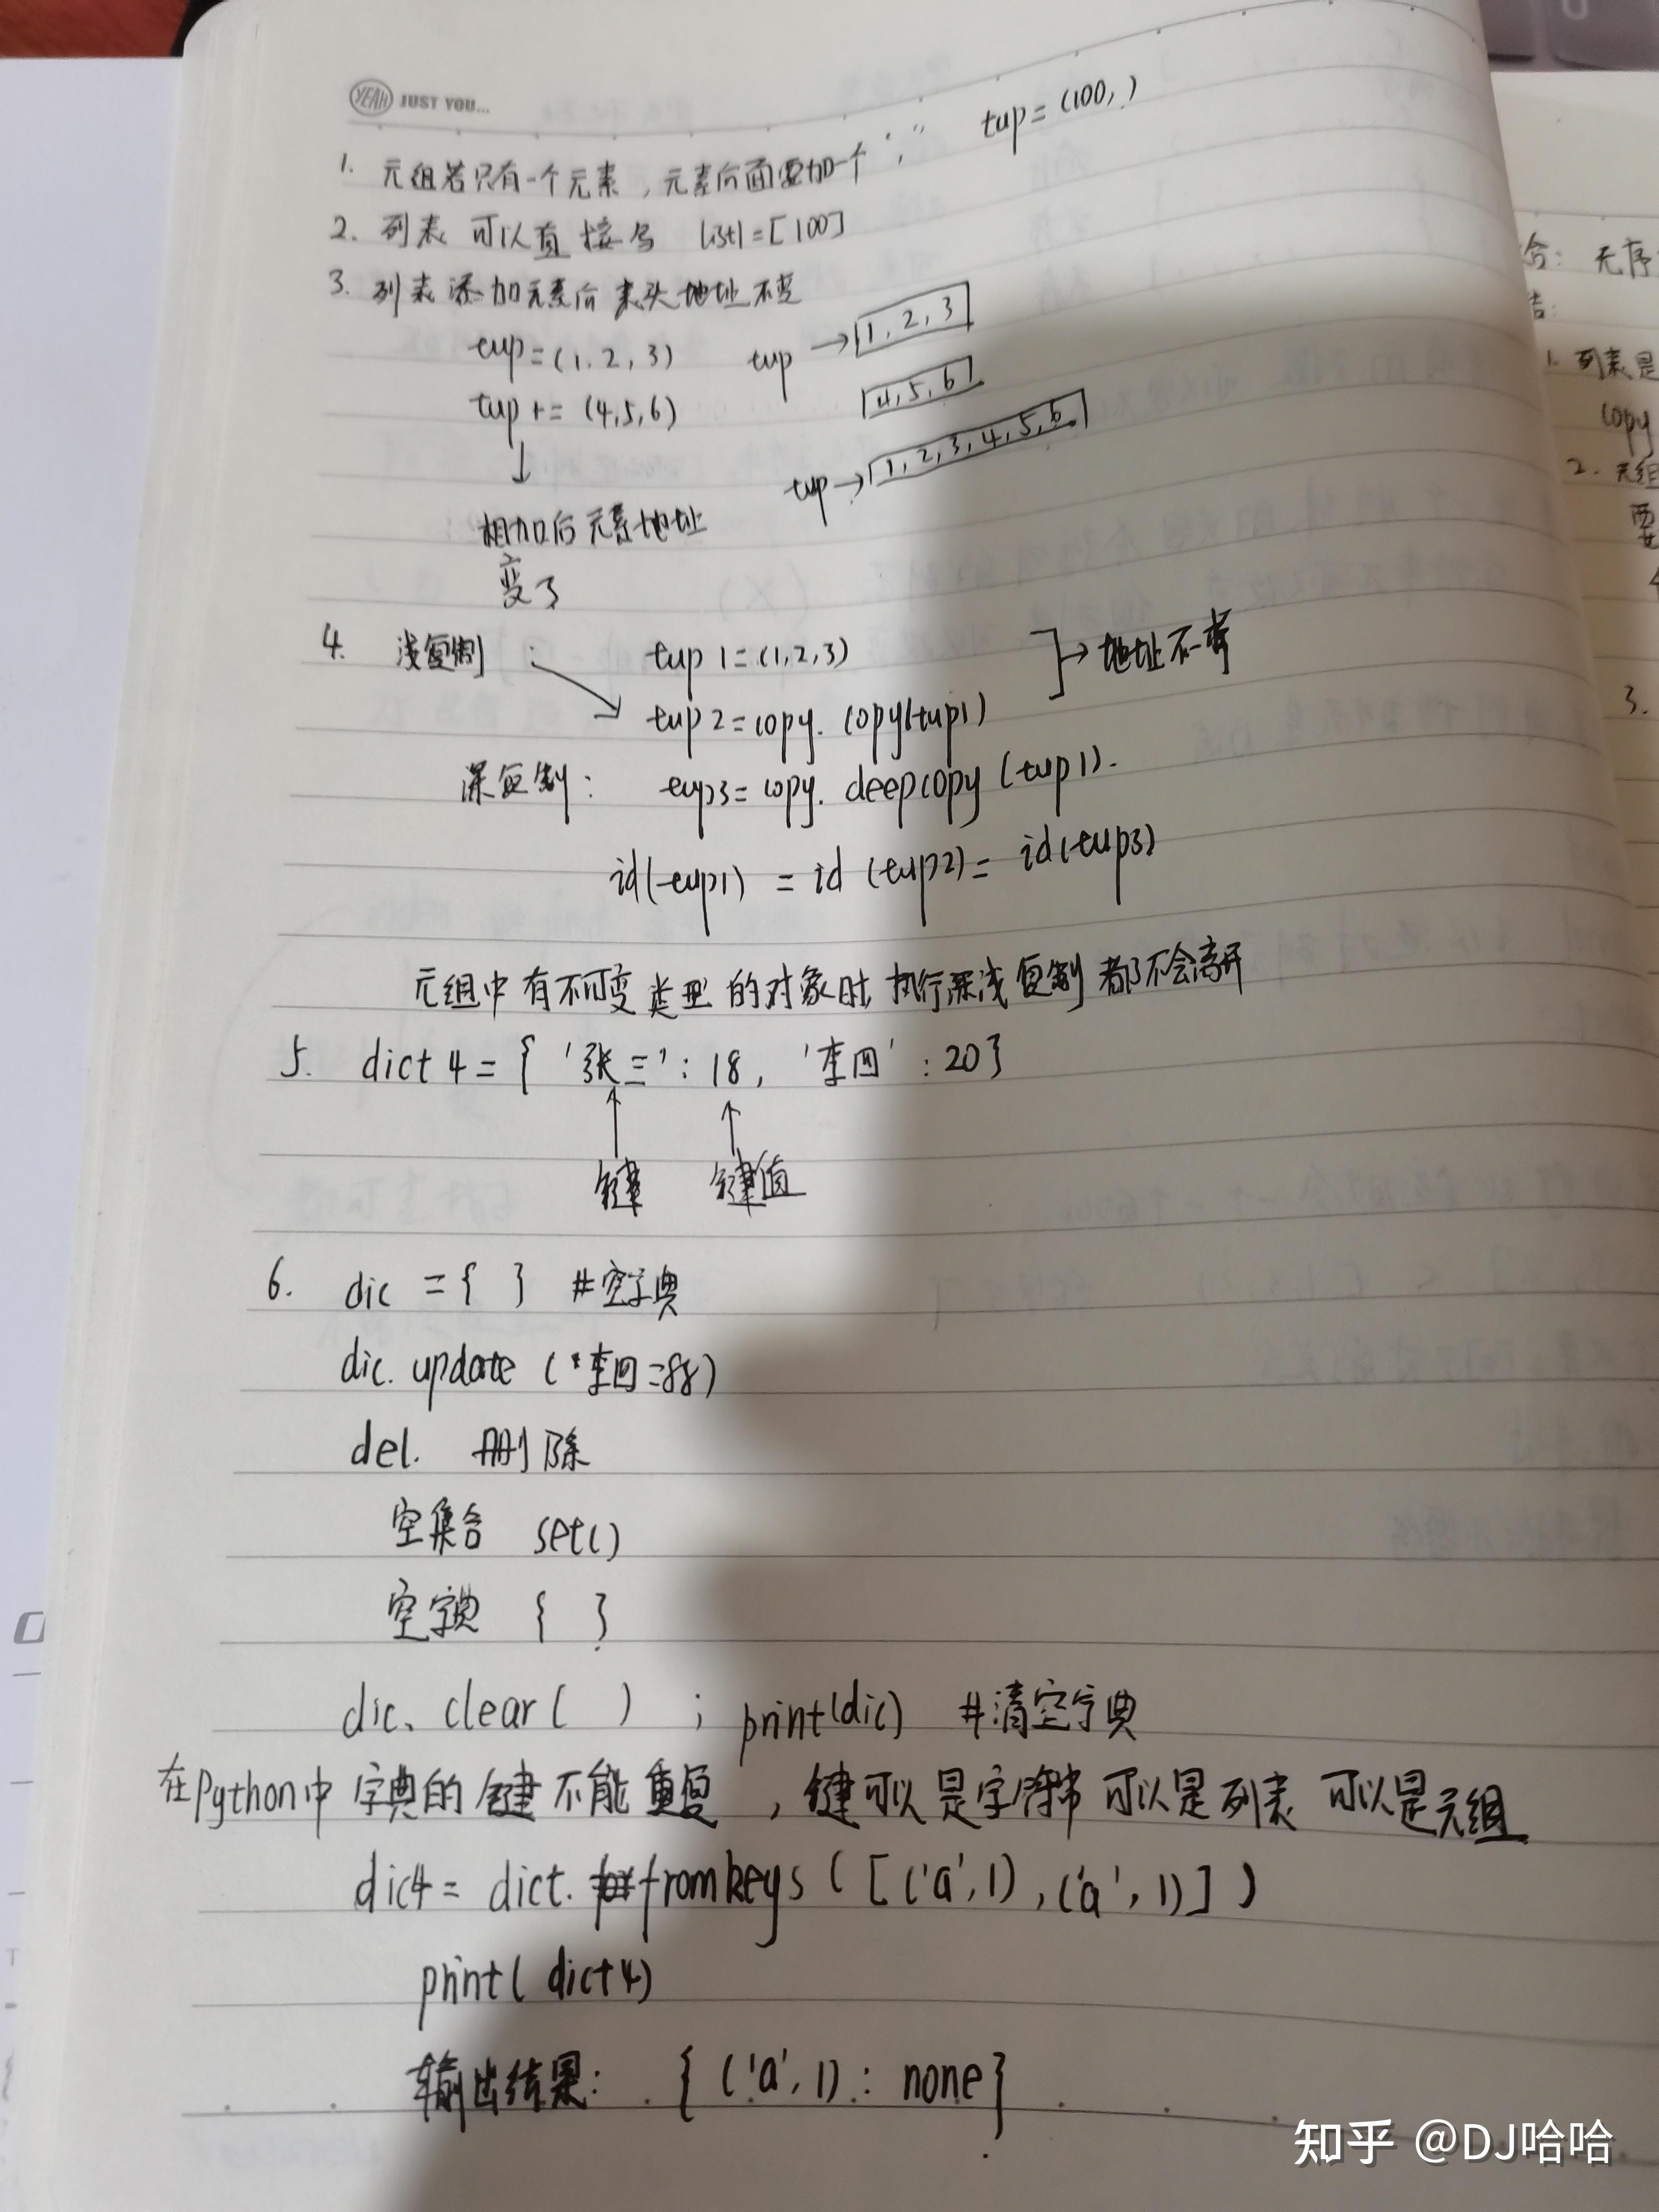 YEAH JUST YOU...
1. 元组若只有一个元素，元素后面要加一个 "," tup=(100,)
2. 列表 可以直接写 list1=[100]
3. 列表添加元素后 表头地址不变
tup=(1,2,3) tup → 1,2,3
tup+=(4,5,6) 4,5,6
↓ tup → 1,2,3,4,5,6
相加后元素地址
变了
4. 浅复制: tup1=(1,2,3) → 地址不一样
tup2=copy.copy(tup1)
深复制: tup3=copy.deepcopy(tup1).
id(tup1) = id(tup2) = id(tup3)
元组中有不可变类型的对象时 执行深浅复制都不会离开
5. dict4={'张三':18, '李四':20}
键 键值
6. dic={ } #空字典
dic.update(*李四=88)
del. 删除
空集合 set()
空字典 { }
dic.clear( ) ; print(dic) #清空字典
在Python中字典的键不能重复，键可以是字符串可以是列表 可以是元组
dic4=dict.fromkeys([('a',1),('a',1)])
print(dict4)
输出结果: {('a',1):none}
合: 无序
结:
1. 列表是
copy
2. 元组
要
3.
知乎 @DJ哈哈